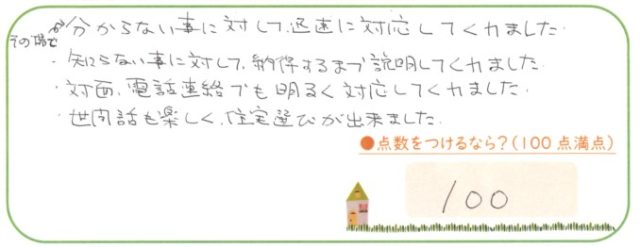 その場で
・分からない事に対して、迅速に対応してくれました。
・知らない事に対して、納得するまで説明してくれました。
・対面、電話連絡でも明るく対応してくれました。
・世間話も楽しく、住宅選びが出来ました。
●点数をつけるなら?(100点満点)
100